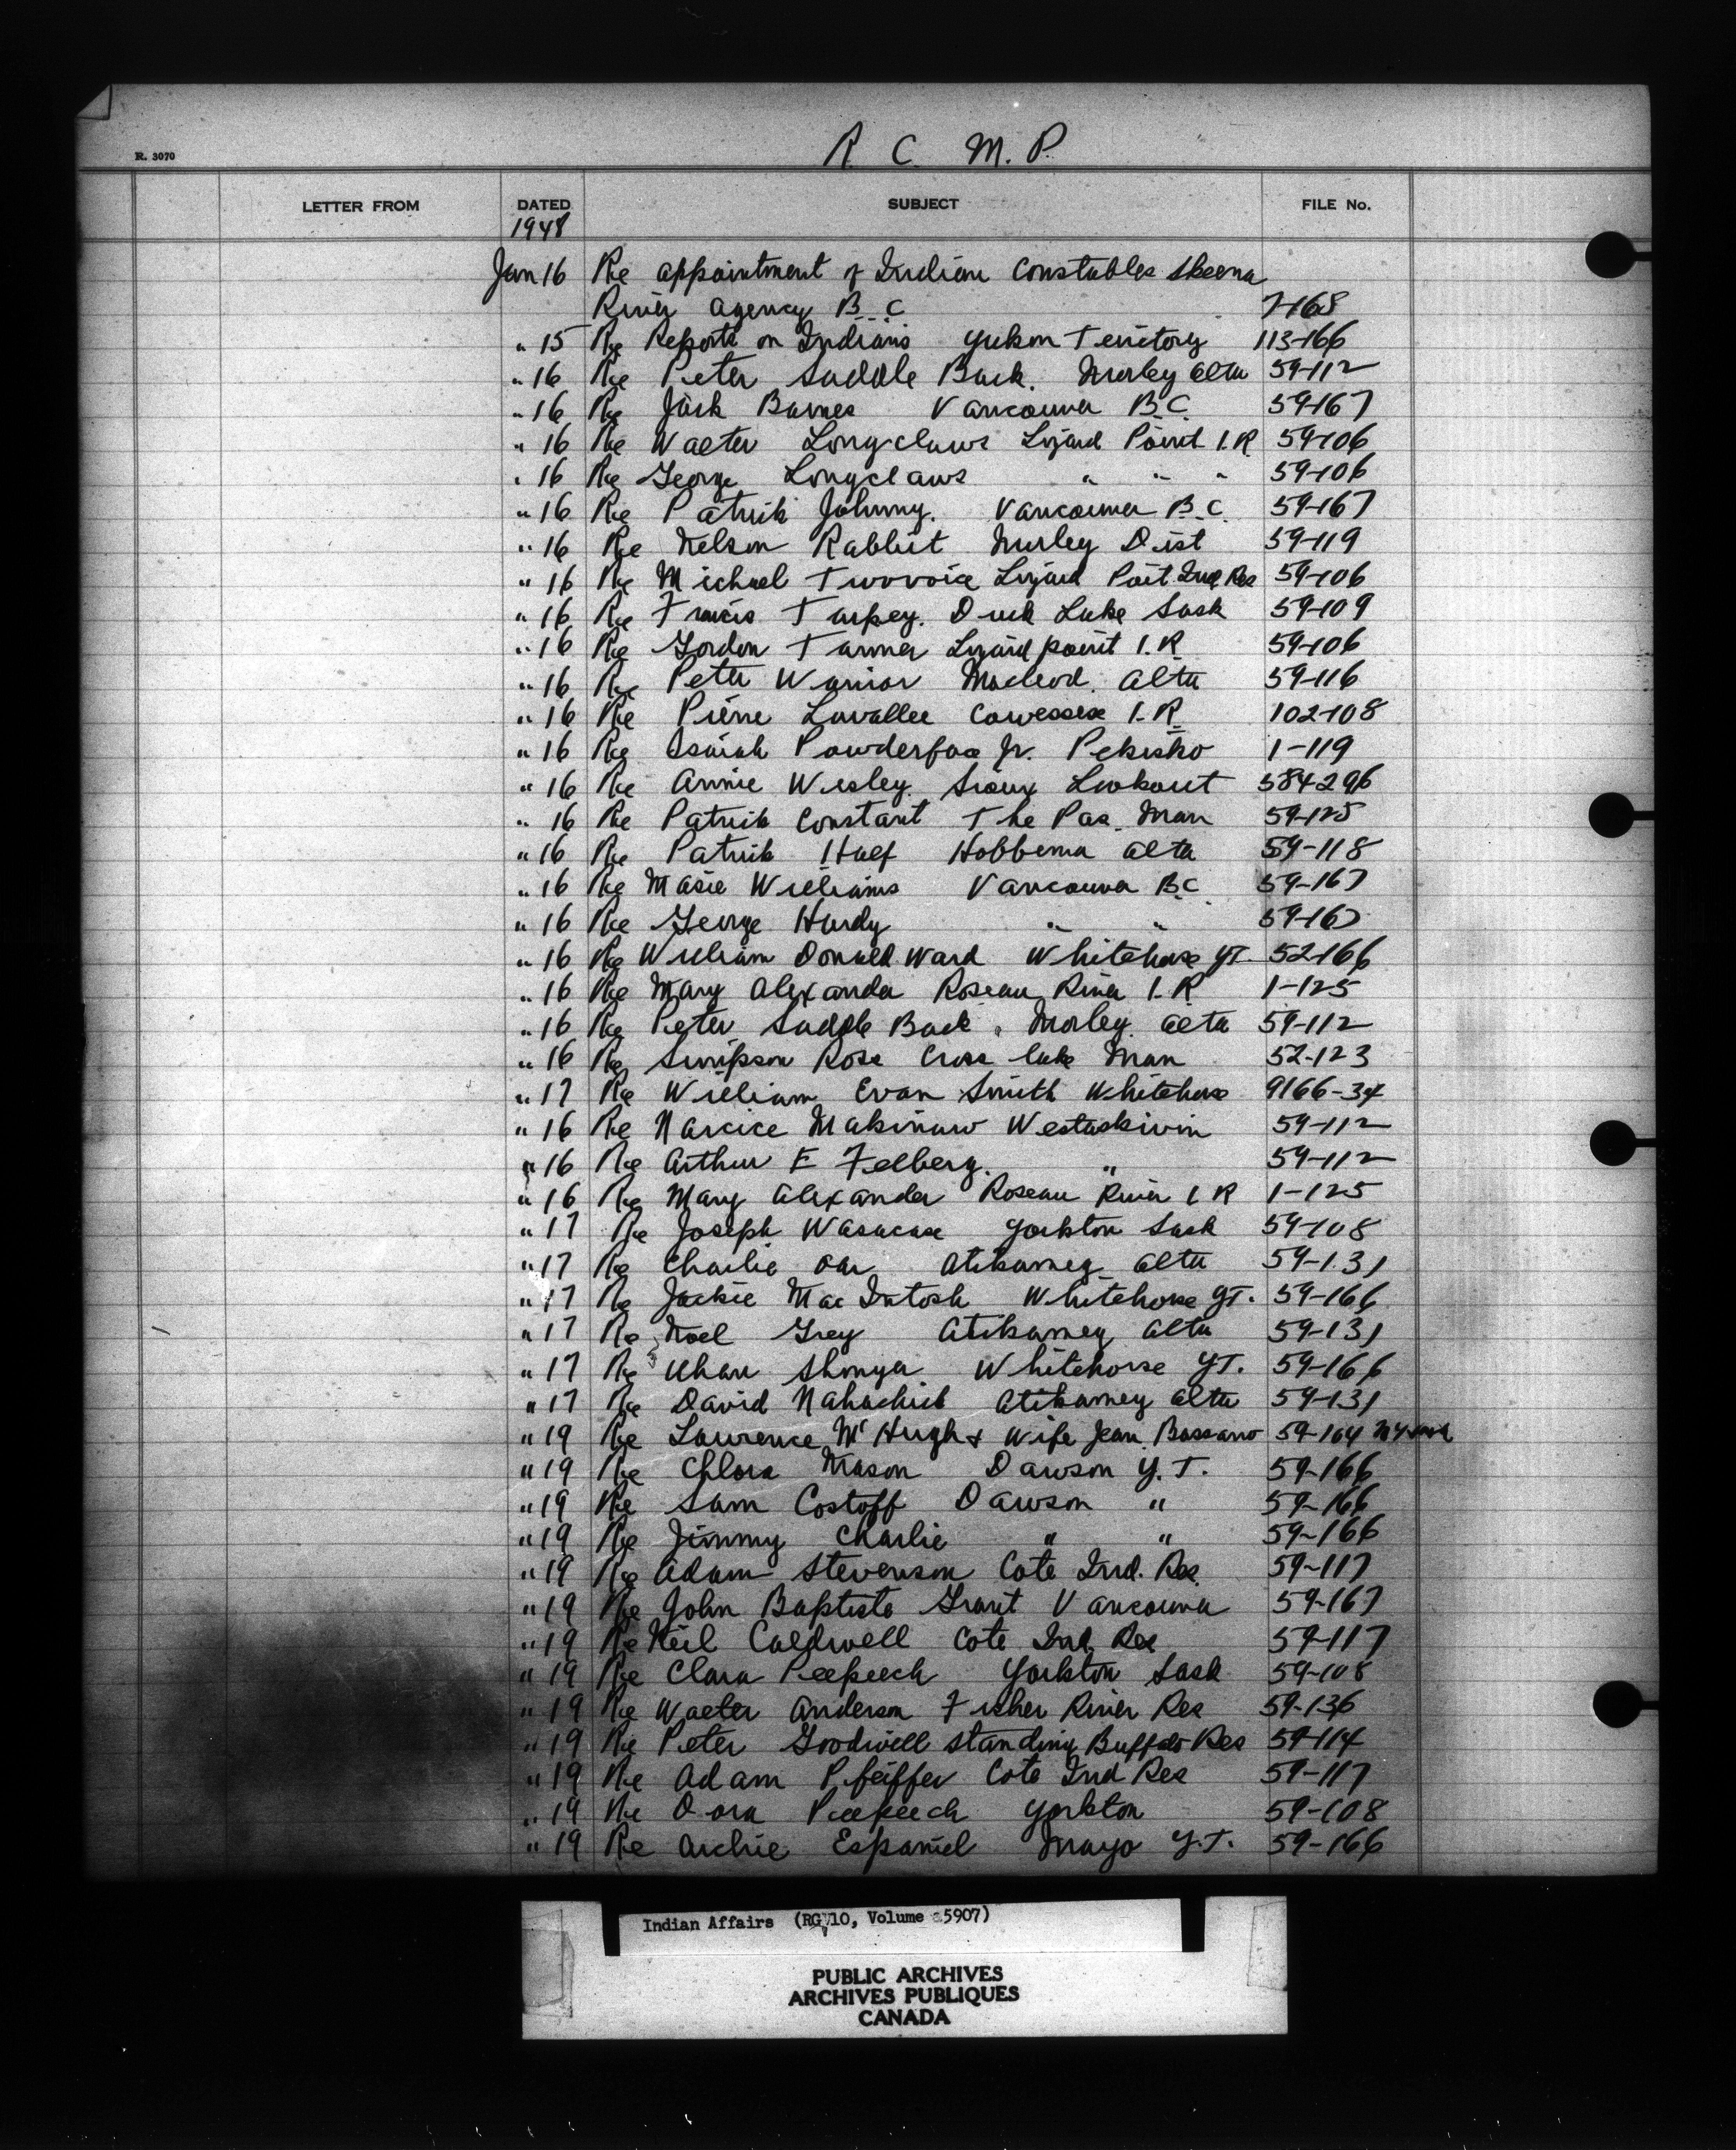 R. 3070
R. C. M. P.
LETTER FROM DATED SUBJECT FILE No.
1948
Jan 16 Re appointment of Indian Constables Skeena
River Agency B.C 7-168
" 15 Re Reports on Indians Yukon Territory 113-166
" 16 Re Peter Saddle Back. Morley Alta 59-112
" 16 Re Jack Barnes Vancouver B.C. 59-167
" 16 Re Walter Longclaws Lizard Point I.R 59-106
" 16 Re George Longclaws " " " 59-106
" 16 Re Patrick Johnny. Vancouver B.C. 59-167
" 16 Re Nelson Rabbit Morley Dist 59-119
" 16 Re Michael Twovoice Lizard Point Ind Res 59-106
" 16 Re Francis Tarpey. Duck Lake Sask 59-109
" 16 Re Gordon Tanner Lizard point I.R. 59-106
" 16 Re Peter Warrior Macleod. Alta 59-116
" 16 Re Pierre Lavallee Cowessess I.R. 102-108
" 16 Re Isaiah Powderface Jr. Pekisko 1-119
" 16 Re Annie Wesley. Sioux Lookout 584296
" 16 Re Patrick Constant The Pas. Man 59-125
" 16 Re Patrick Half Hobbema Alta 59-118
" 16 Re Masie Williams Vancouver B.C. 59-167
" 16 Re George Hardy " " 59-167
" 16 Re William Donald Ward Whitehorse YT. 52-166
" 16 Re Mary Alexander Roseau River I.R. 1-125
" 16 Re Peter Saddle Back. Morley. Alta 59-112
" 16 Re Simpson Ross Cross Lake Man 52-123
" 17 Re William Evan Smith Whitehorse 9166-34
" 16 Re Narcice Makinaw Wetaskiwin 59-112
" 16 Re Arthur E Felberg. " 59-112
" 16 Re Mary Alexander Roseau River I R 1-125
" 17 Re Joseph Wasacase Yorkton Sask 59-108
" 17 Re Charlie Oar Atikameg Alta 59-131
" 17 Re Jackie MacIntosh Whitehorse YT. 59-166
" 17 Re Noel Grey Atikameg Alta 59-131
" 17 Re Shonga Whitehorse YT. 59-166
" 17 Re David Nahachick Atikameg Alta 59-131
" 19 Re Lawrence McHugh & Wife Jean. Bassano 59-104
" 19 Re Chlora Mason Dawson Y.T. 59-166
" 19 Re Sam Costoff Dawson " 59-166
" 19 Re Jimmy Charlie " " 59-166
" 19 Re Adam Stevenson Cote Ind. Res. 59-117
" 19 Re John Baptiste Grant Vancouver 59-167
" 19 Re Neil Caldwell Cote Ind Res 59-117
" 19 Re Clara Peepeech Yorkton Sask 59-108
" 19 Re Walter Anderson Fisher River Res 59-136
" 19 Re Peter Goodwill Standing Buffalo Res 59-114
" 19 Re Adam Pfeiffer Cote Ind Res 59-117
" 19 Re Dora Peepeech Yorkton 59-108
" 19 Re Archie Espaniel Mayo Y.T. 59-166
Indian Affairs (RG 10, Volume 5907)
PUBLIC ARCHIVES
ARCHIVES PUBLIQUES
CANADA